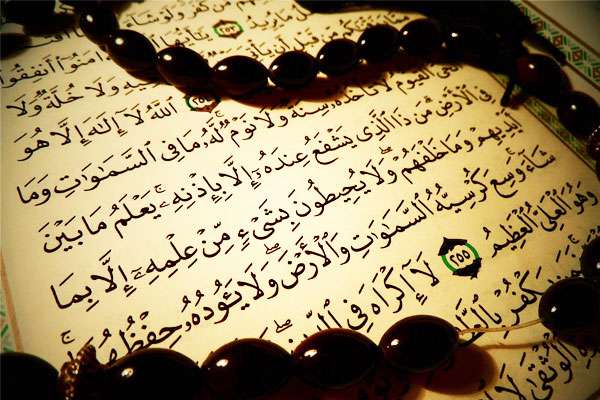 مَّن كَفَرَ وَلَوْ شَآءَ
مَا يُرِيدُ ٢٥٣ يَٰٓأَيُّهَا ءَامَنُوٓا۟ أَنفِقُوا۟
مِّن قَبْلِ أَن فِيهِ وَلَا خُلَّةٌ وَلَا
٢٥٤ ٱللَّهُ لَآ إِلَٰهَ إِلَّا هُوَ
ٱلْقَيُّومُ لَا تَأْخُذُهُۥ سِنَةٌ وَلَا نَوْمٌ ۚ لَّهُۥ مَا فِى ٱلسَّمَٰوَٰتِ وَمَا
فِى ٱلْأَرْضِ ۗ مَن ذَا ٱلَّذِى يَشْفَعُ عِندَهُۥٓ إِلَّا بِإِذْنِهِۦ ۚ يَعْلَمُ مَا بَيْنَ
أَيْدِيهِمْ وَمَا خَلْفَهُمْ ۖ وَلَا يُحِيطُونَ بِشَىْءٍ مِّنْ عِلْمِهِۦٓ إِلَّا بِمَا
شَآءَ ۚ وَسِعَ كُرْسِيُّهُ ٱلسَّمَٰوَٰتِ وَٱلْأَرْضَ ۖ وَلَا يَـُٔودُهُۥ حِفْظُهُمَا ۚ
وَهُوَ ٱلْعَلِىُّ ٱلْعَظِيمُ ٢٥٥ لَآ إِكْرَاهَ فِى
يَكْفُرْ
ٱلْوُثْقَىٰ لَا